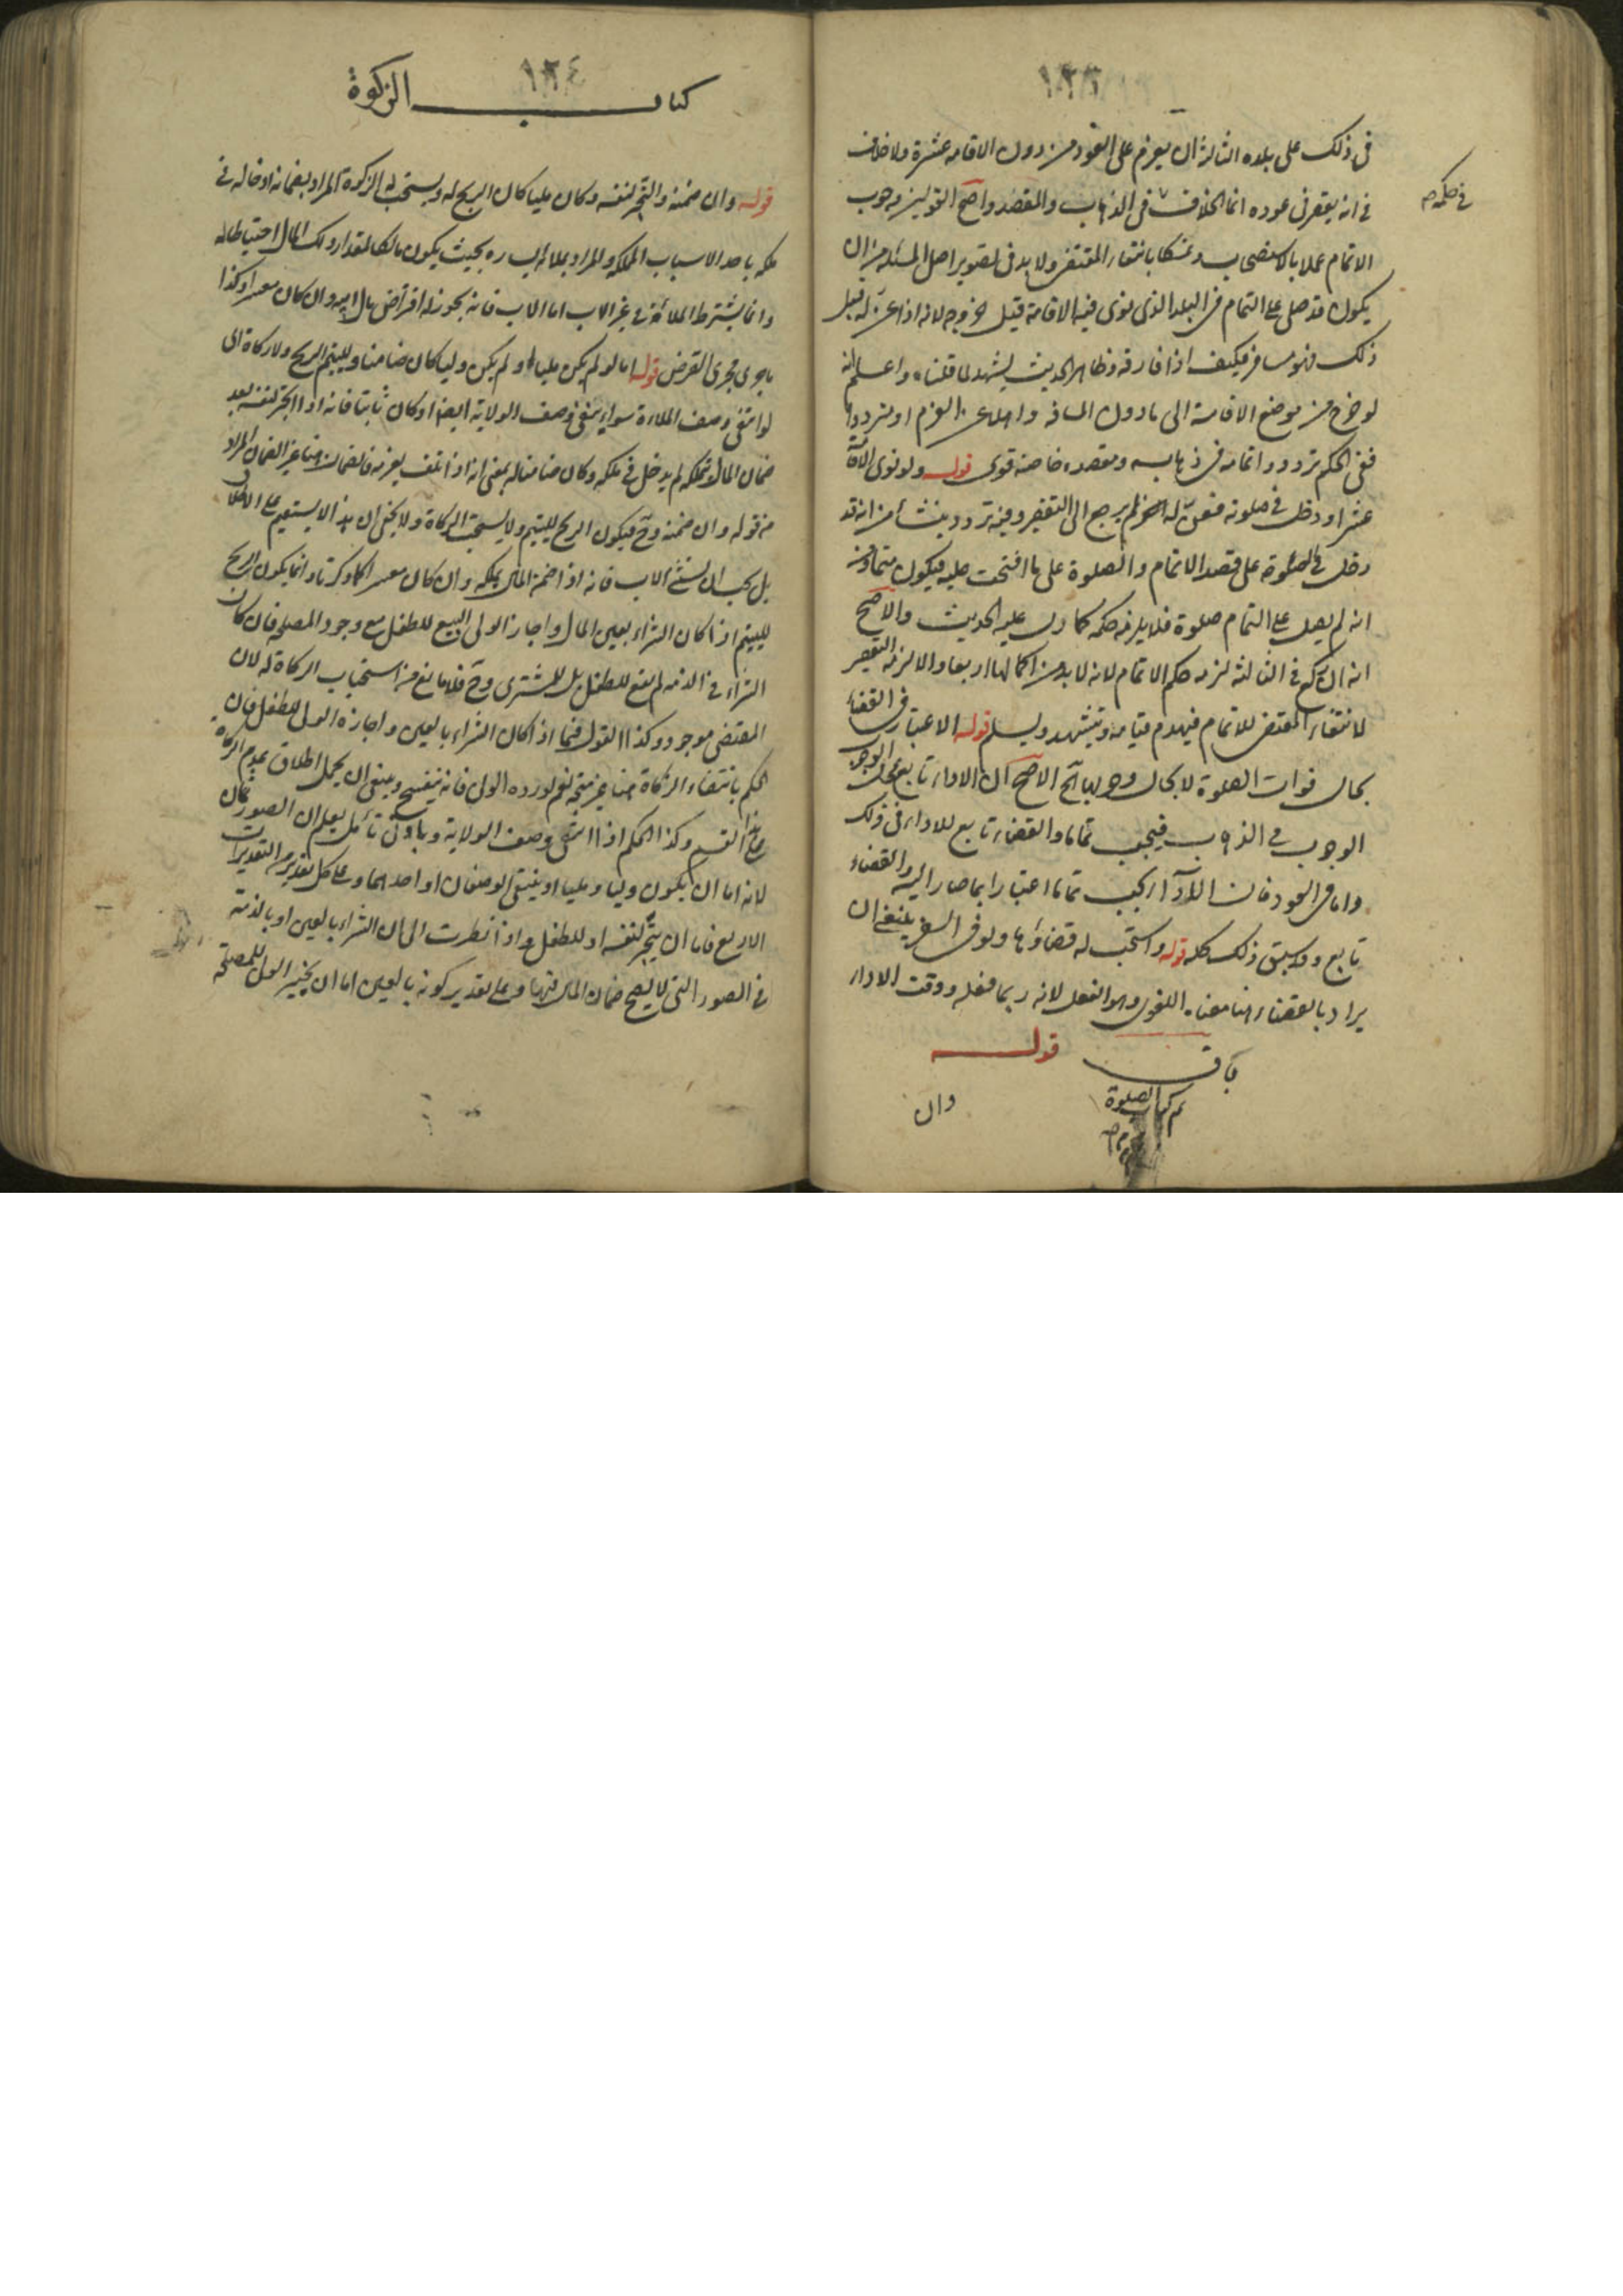 ١٢٣
فى ذلك على بلده الثالثة ان يعزم على العود من دون الاقامة عشرة ولا خلاف
فى انه يقصر فى عوده انما الخلاف فى الذهاب والمقصد واصح القولين وجوب
فى حكمه صح
الاتمام عملا بالاستصحاب وتمسكا بانتفاء المقتضى ولا بد فى تصوير اصل المسئلة من ان
يكون قد صلى على التمام فى البلد الذى نوى فيه الاقامة قبل خروجه لانه اذا عن له قبل
ذلك فهو مسافر فكيف اذا فارقه وظاهر الحديث يشهد لما قلناه واعلم انه
لو خرج من موضع الاقامة الى ما دون المسافة واهمل العزم او تردد
ففى الحكم تردد واتمامه فى ذهابه ومقصده خاصة قوى قوله ولو نوى الاقامة
عشرا ودخل فى صلوته فعن له السفر لم يرجع الى التقصير وفيه تردد ينشأ من انه قد
دخل فى الصلوة على قصد الاتمام والصلوة على ما افتتحت عليه فيكون متما ومن
انه لم يصل على التمام صلوة فلا يلزمه حكمه كما دل عليه الحديث والاصح
انه ان ركع فى الثالثة لزمه حكم الاتمام لانه لا بد من اكمالها اربعا والا لزمه التقصير
لانتفاء المقتضى للاتمام فيهدم قيامه ويتشهد ويسلم قوله الاعتبار فى القضاء
بحال فوات الصلوة لا بحال وجوبها الخ الاصح ان الاداء تابع لمحل الوجوب
الوجوب فى الذهاب فيجب تماما والقضاء تابع للاداء فى ذلك
واما فى العود فان الاداء يجب تماما اعتبارا بما صار اليه والقضاء
تابع وقد سبق ذلك كله قوله واستحب له قضاؤها ولو فى السفر ينبغى ان
يراد بالقضاء هنا معناه اللغوى وهو الفعل لانه ربما فعله ووقت الاداء
باق قوله
تم كتاب الصلوة
وان
١٢٤
كتاب الزكوة
قوله وان ضمنه واتجر لنفسه وكان مليا كان الربح له ويستحب له الزكوة المراد بضمانه ادخاله فى
ملكه باحد الاسباب المملكة والمراد بملائه اليساره بحيث يكون مالكا لمقدار ذلك المال احتياطا له
وانما يشترط الملائة فى غير الاب اما الاب فانه يجوز له اقتراض مال ابنه وان كان معسرا وكذا
ما جرى مجرى القرض قوله اما لو لم يكن مليا او لم يكن وليا كان ضامنا ولليتيم الربح ولا زكاة الى
لو انتفى وصف الملاءة سواء نفى وصف الولاية ايضا او كان ثابتا فانه اذا اتجر لنفسه بعد
ضمان المال وتملكه لم يدخل فى ملكه وكان ضامنا له بمعنى انه اذا تلف يغرمه فالضمان هنا غير الضمان المراد
من قوله وان ضمنه وح فيكون الربح لليتيم ولا يستحب الزكاة ولا يخفى ان هذا لا يستقيم على الاطلاق
بل يجب ان يستثنى الاب فانه اذا ضمن المال يملكه وان كان معسرا كما ذكرناه وانما يكون الربح
لليتيم اذا كان الشراء بعين المال واجاز الولى البيع للطفل مع وجود المصلحة فان كان
الشراء فى الذمه لم يقع للطفل بل للمشترى وح فلا مانع من استحباب الزكاة له لان
المقتضى موجود وكذا القول فيما اذا كان الشراء بالعين واجازه الولى للطفل فان
الحكم بانتفاء الزكاة هنا غير متجه نعم لو رده الولى فانه ينفسخ وينبغى ان يحمل اطلاق عدم الزكاة
على هذا القسم وكذا الحكم اذا انتفى وصف الولاية وبادنى تأمل يعلم ان الصور ثمان
لانه اما ان يكون وليا ومليا او ينتفى الوصفان او احدهما وعلى كل تقدير من التقديرات
الاربع فاما ان يتجر لنفسه او للطفل واذا نظرت الى ان الشراء بالعين او بالذمة
فى الصور التى لا يصح ضمان المال فيها وعلى تقدير كونه بالعين اما ان يجيز الولى للمصلحة